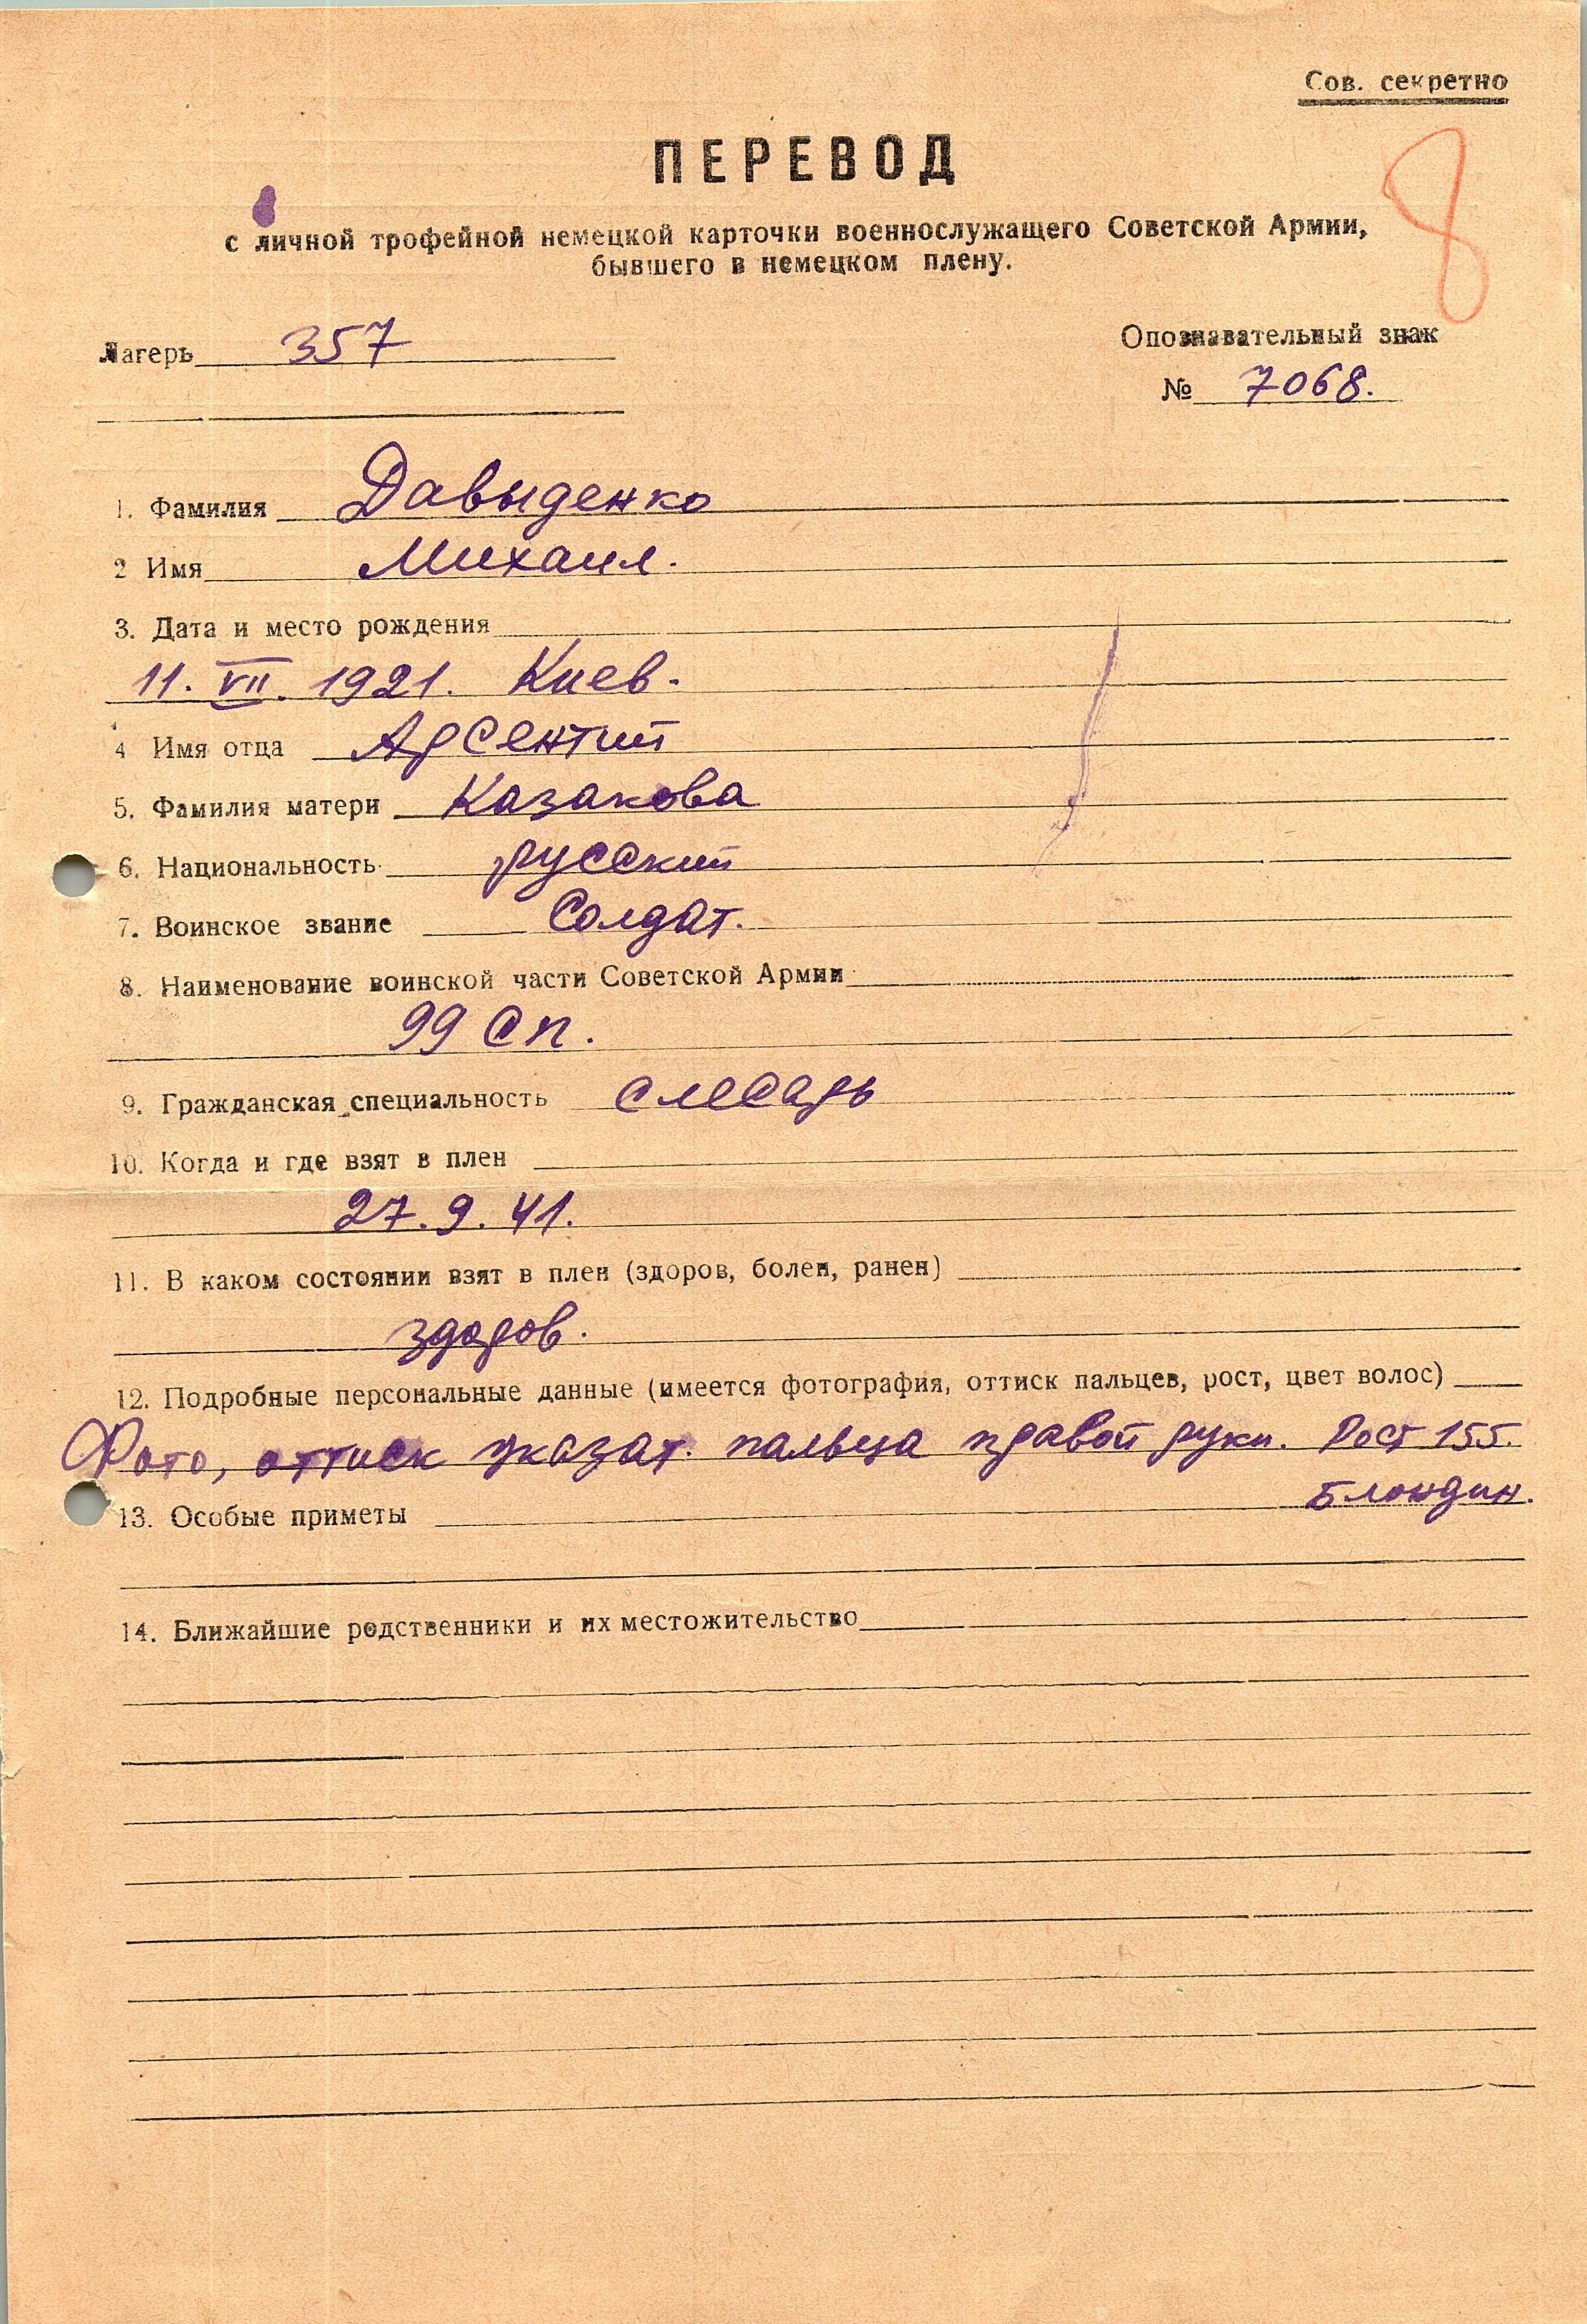 Сов. секретно
8
ПЕРЕВОД
с личной трофейной немецкой карточки военнослужащего Советской Армии,
бывшего в немецком плену.
Лагерь 357
Опознавательный знак
№ 7068.
1. Фамилия Давыденко
2 Имя Михаил.
3. Дата и место рождения
11. VII. 1921. Киев.
4 Имя отца Арсентий
5. Фамилия матери Казакова
6. Национальность русский
7. Воинское звание Солдат.
8. Наименование воинской части Советской Армии
99 сп.
9. Гражданская специальность слесарь
10. Когда и где взят в плен
27. 9. 41.
11. В каком состоянии взят в плен (здоров, болен, ранен)
здоров.
12. Подробные персональные данные (имеется фотография, оттиск пальцев, рост, цвет волос)
Фото, оттиск указат. пальца правой руки. Рост 155.
Блондин.
13. Особые приметы
14. Ближайшие родственники и их местожительство